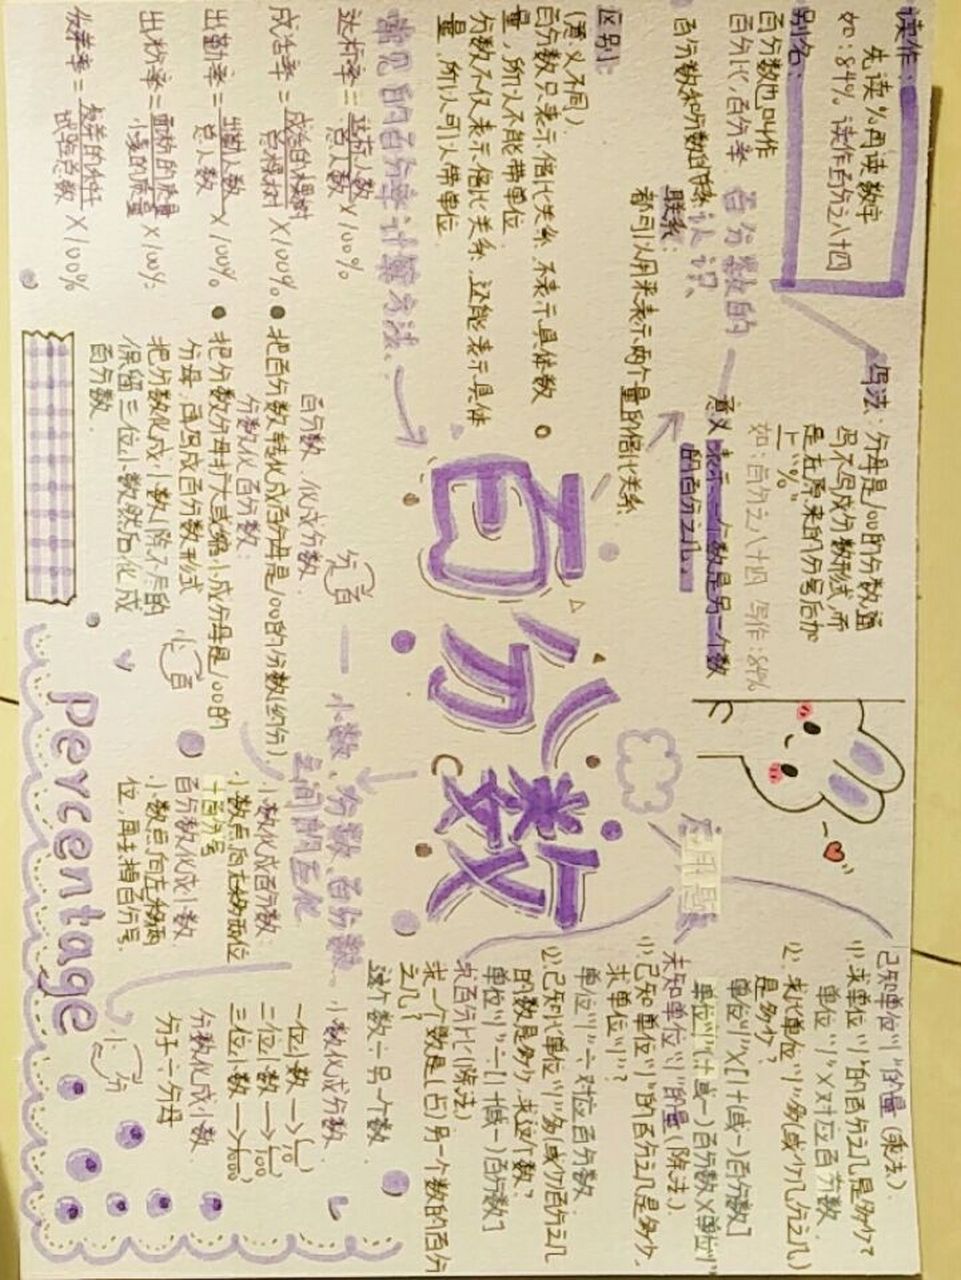 读作:
先读%再读数字
如:84% 读作百分之八十四
别名:
百分数也叫作
百分比,百分率
百分数的
认识
写法:分母是100的分数通
常不写成分数形式,而
是在原来的分子后加
上"%"
如:百分之八十四 写作:84%
意义:表示一个数是另一个数
的百分之几
百分数和分数的联系
联系:
都可以用来表示两个量的倍比关系
区别:
(意义不同)
百分数只表示倍比关系,不表示具体数
量,所以不能带单位
分数不仅表示倍比关系,还能表示具体
量,所以可以带单位
常见的百分率计算方法:
达标率=达标人数/总人数×100%
成活率=成活的棵树/总棵树×100%
出勤率=出勤人数/总人数×100%
出粉率=面粉的质量/小麦的质量×100%
发芽率=发芽的种子/试验总数×100%
百分数
小数、分数、百分数
之间的互化
分 百
百分数化成分数
●把百分数转化成百分母是100的分数(约分)
分数化百分数:
●把分数分母扩大或缩小成分母是100的
分母,再写成百分数形式
把分数化成小数(除不尽的
保留三位小数)然后化成
百分数.
小 百
小数化成百分数:
小数点向右移两位
+百分号
百分数化成小数
小数点向左移两
位,再去掉百分号
小数化成分数
一位小数→(1/10)
二位小数→(1/100)
三位小数→(1/1000)
分数化成小数
分子÷分母
小 分
percentage
应用题
已知单位"1"的量(乘法)
(1)求单位"1"的百分之几是多少?
单位"1"×对应百分数
(2)求比单位"1"多(或少)几分之几
是多少?
单位"1"×[1+或-)百分数]
单位"1"(+或-)百分数×单位"1"
未知单位"1"的量(除法)
(1)已知单位"1"的百分之几是多少,
求单位"1"?
单位"1"÷对应百分数
(2)已知比单位"1"多(或少)百分之几
的数是多少,求这个数?
单位"1"÷[1+或-)百分数]
求百分比(除法)
求一个数是(占)另一个数的百分
之几?
这个数÷另一个数